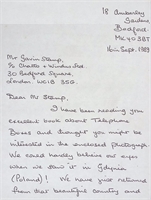 18 Amberley
Gardens
Bedford.
MK40 3BT
16th Sept. 1989
Mr Gavin Stamp,
c/o Chatto + Windus Ltd
30 Bedford Square,
London. WC1B 3SG.
Dear Mr Stamp,
I have been reading your
excellent book about Telephone
Boxes and thought you might be
interested in the enclosed photograph.
We could hardly believe our eyes
when we saw it in Gdynia
(Poland)! We have just returned
from that beautiful country and